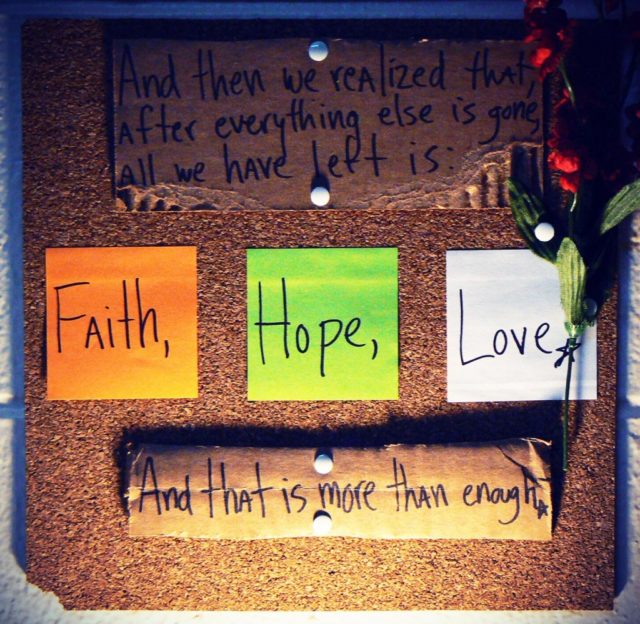 And then we realized that,
After everything else is gone,
All we have left is:
Faith,
Hope,
Love
And that is more than enough